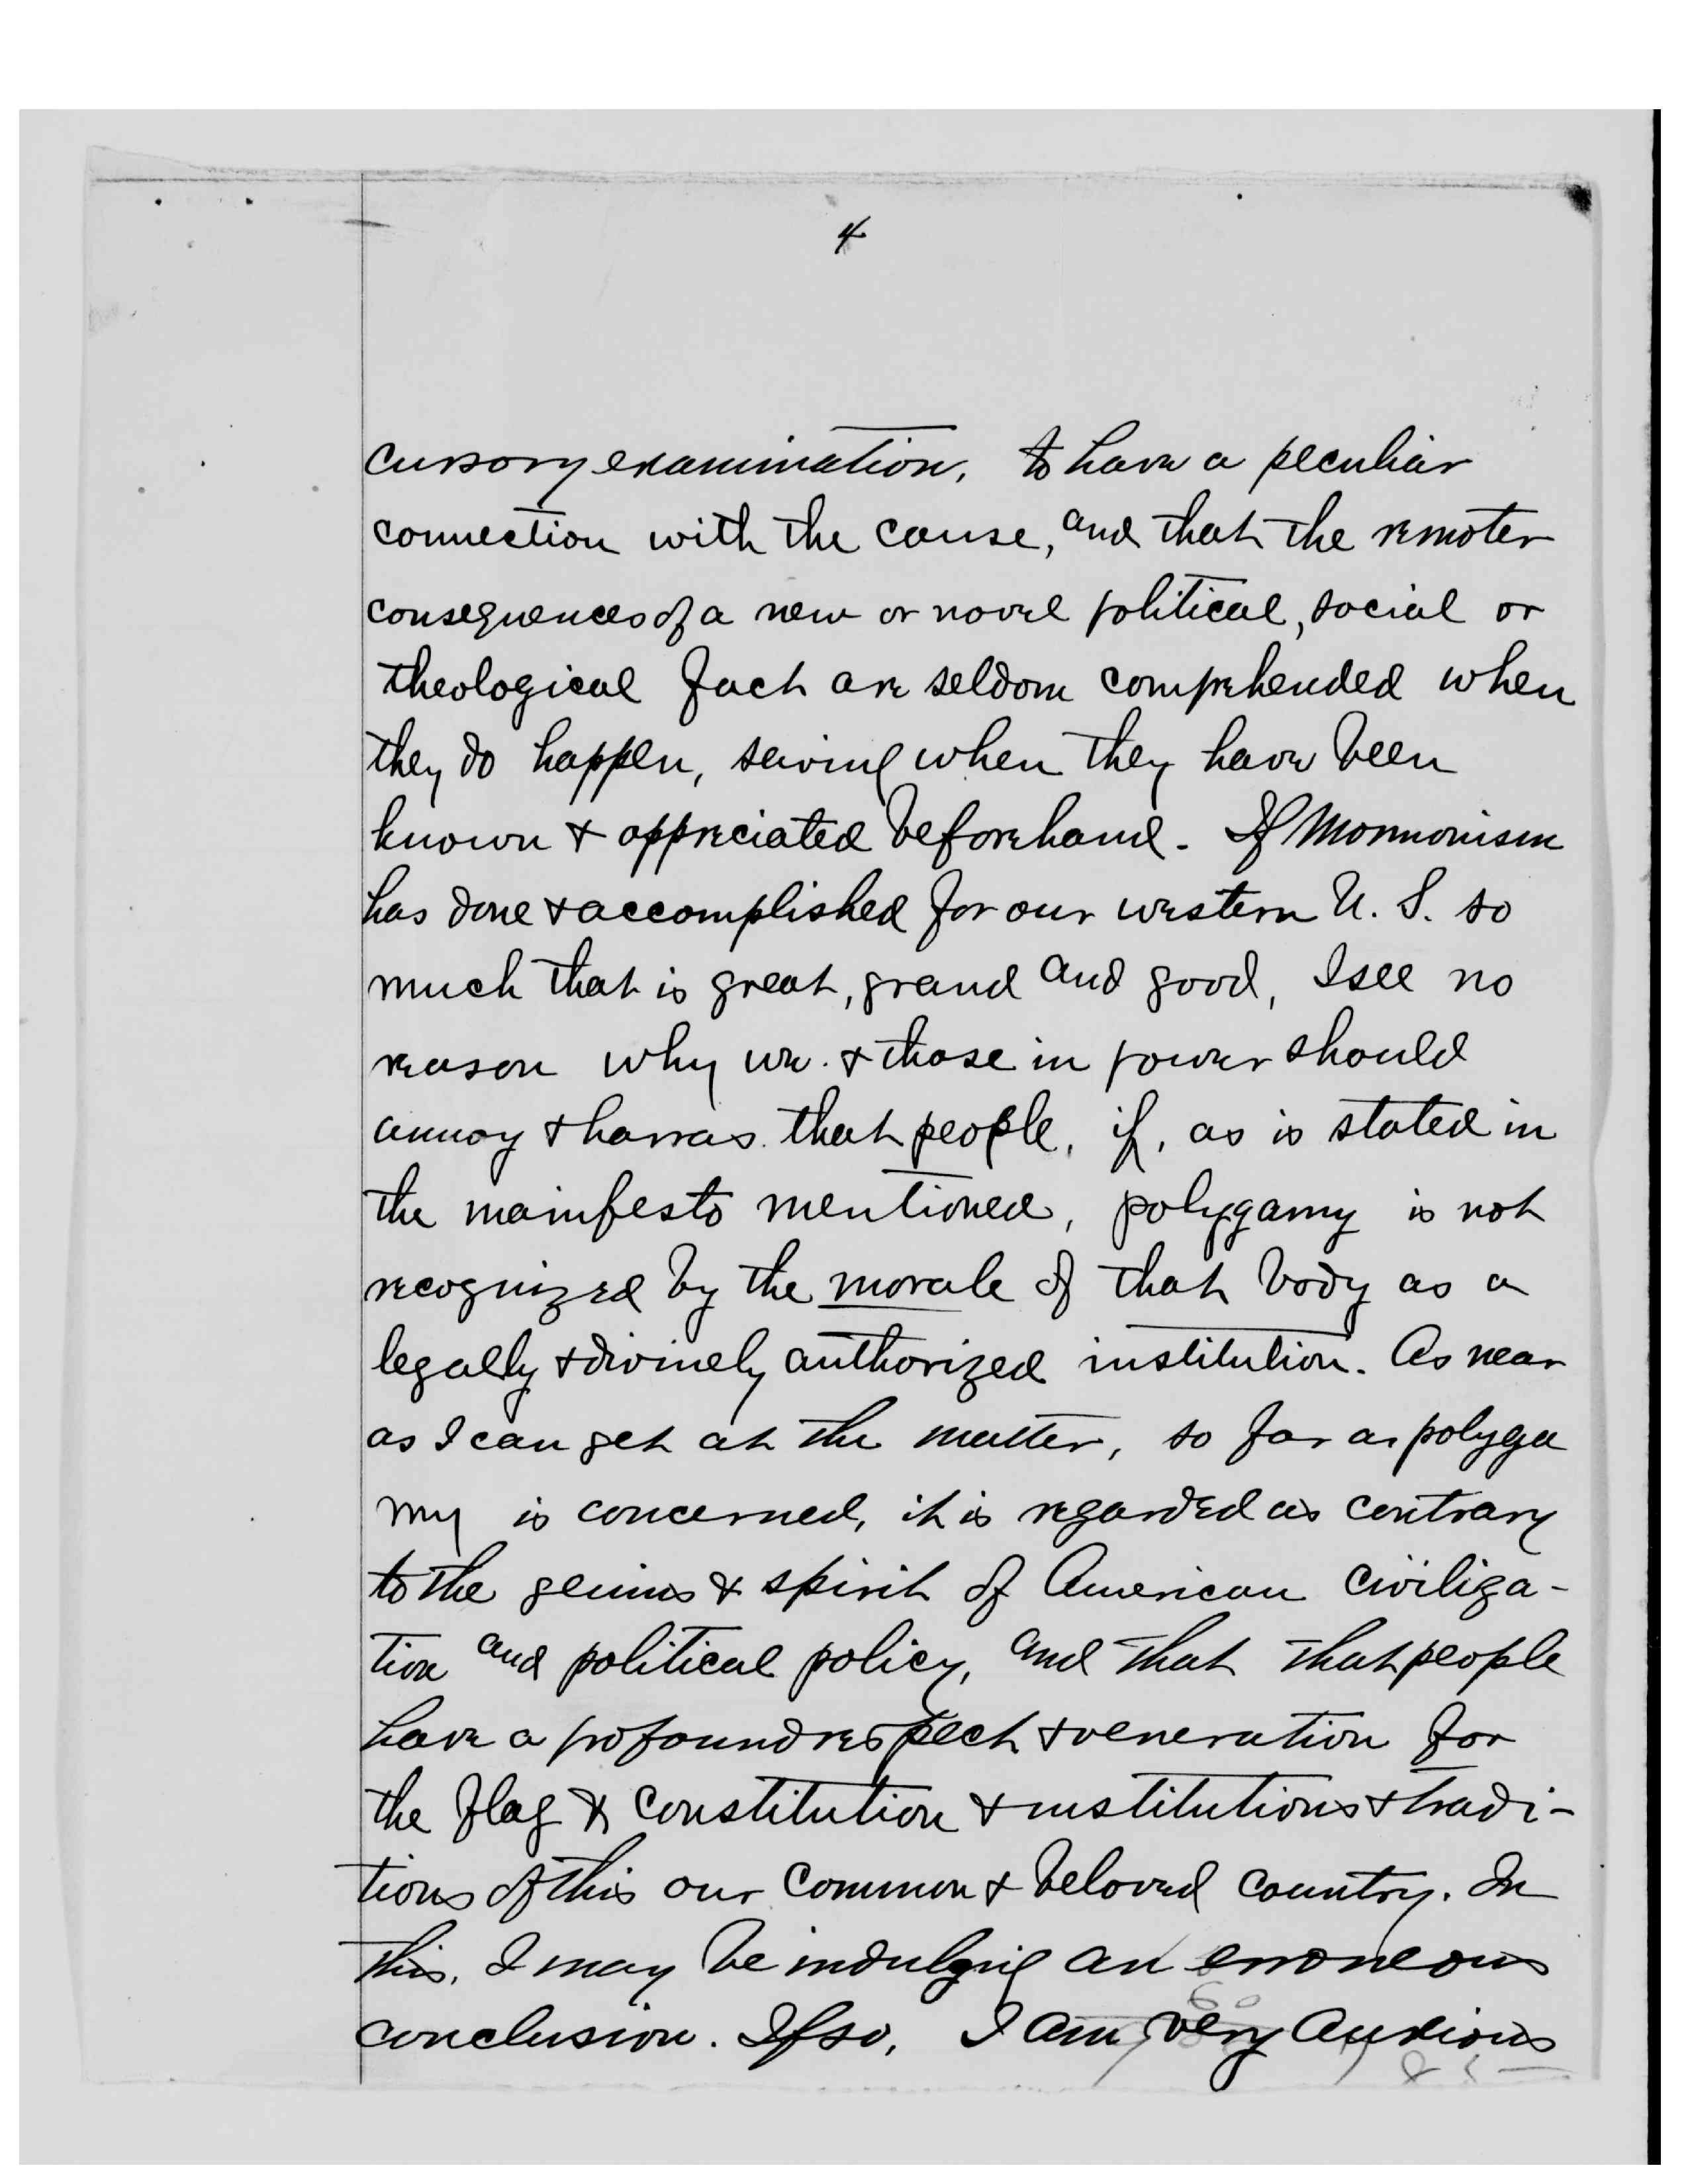 4
cursory examination, to have a peculiar
connection with the cause, and that the remoter
consequences of a new or novel political, social or
theological fact are seldom comprehended when
they do happen, saving when they have been
known & appreciated beforehand. If Mormonism
has done & accomplished for our western U. S. so
much that is great, grand and good, I see no
reason why we. & those in power should
annoy & harras that people, if, as is stated in
the manifesto mentioned, polygamy is not
recognized by the morale of that body as a
legally & divinely authorized institution. As near
as I can get at the matter, so far as polyga
my is concerned, it is regarded as contrary
to the genius & spirit of American civiliza-
tion and political policy, and that that people
have a profound respect & veneration for
the flag & constitution & institutions & tradi-
tions of this our common & beloved country. In
this, I may be indulging an erroneous
conclusion. If so, I am very anxious